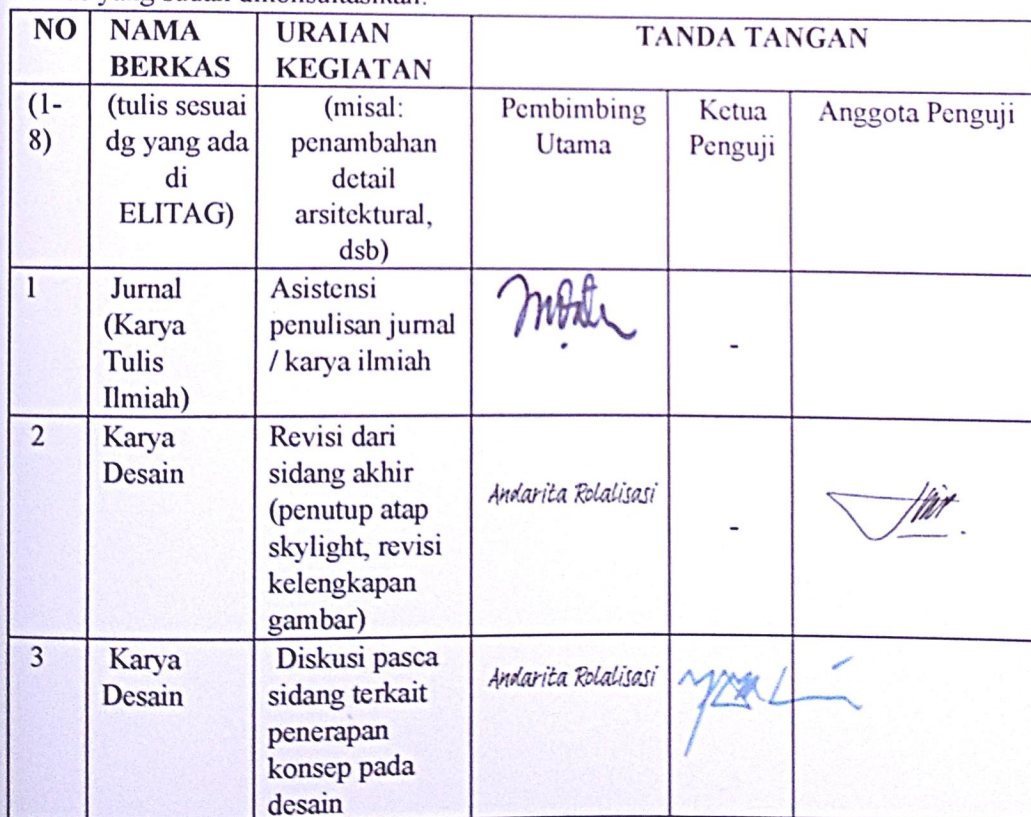 yang sudah dikonsultasikan.
NO NAMA BERKAS URAIAN KEGIATAN TANDA TANGAN
(1-8) (tulis sesuai dg yang ada di ELITAG) (misal: penambahan detail arsitektural, dsb) Pembimbing Utama Ketua Penguji Anggota Penguji
1 Jurnal (Karya Tulis Ilmiah) Asistensi penulisan jurnal / karya ilmiah -
2 Karya Desain Revisi dari sidang akhir (penutup atap skylight, revisi kelengkapan gambar) Andarita Rolalisasi -
3 Karya Desain Diskusi pasca sidang terkait penerapan konsep pada desain Andarita Rolalisasi